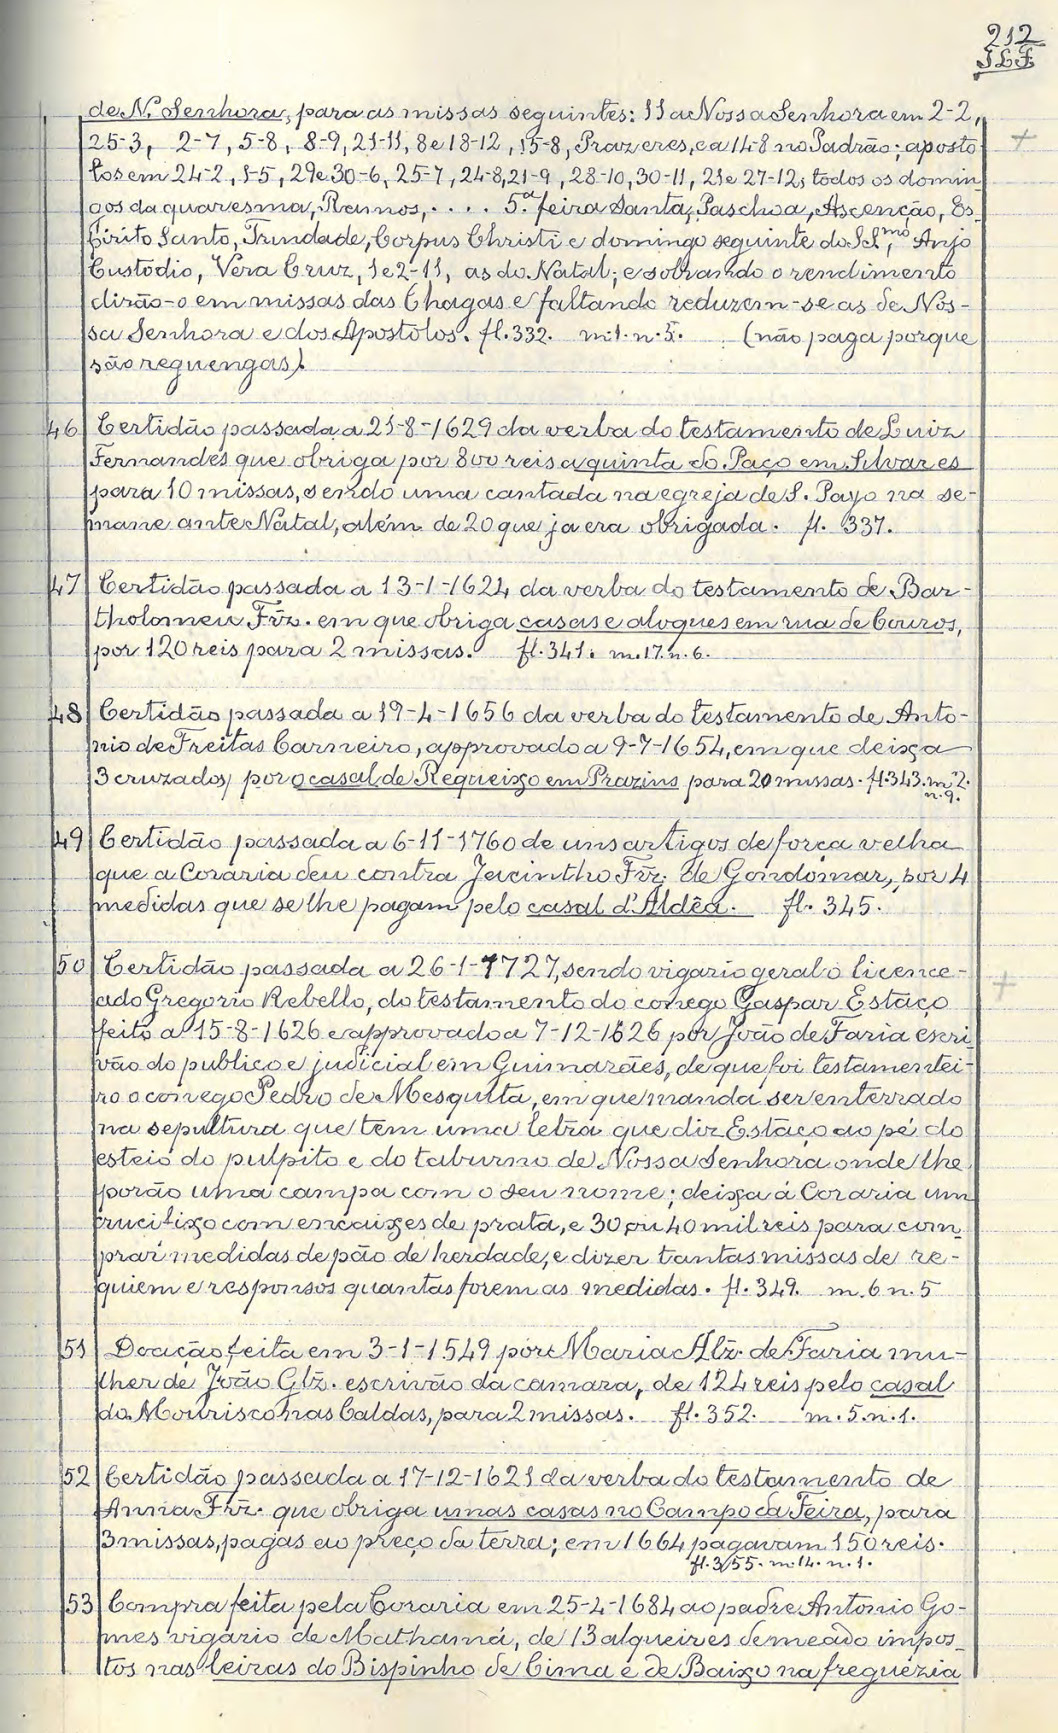 212
J L F
de N. Senhora, para as missas seguintes: 11 a Nossa Senhora em 2-2,
25-3, 2-7, 5-8, 8-9, 21-11, 8 e 18-12, 15-8, Prazeres, ea 14-8 no Padrão; aposto-
los em 24-2, 1-5, 29 e 30-6, 25-7, 24-8, 21-9, 28-10, 30-11, 21 e 27-12; todos os domin-
gos da quaresma, Ramos, .... 5.ª feira Santa, Paschoa, Ascenção, Es-
pirito Santo, Trindade, Corpus Christi e domingo seguinte do SS.mo, Anjo
Custodio, Vera Cruz, 1 e 2-11, as do Natal; e sobrando o rendimento
dirão-o em missas das Chagas e faltando reduzem-se as de Nos-
sa Senhora e dos Apostolos. fl. 332. m. 1. n. 5. (não paga porque
são reguengas).
46 Certidão passada a 21-8-1629 da verba do testamento de Luiz
Fernandes que obriga por 800 reis a quinta do Paço em Silvares
para 10 missas, sendo uma cantada na egreja de S. Payo na se-
mane ante Natal, além de 20 que ja era obrigada. fl. 337.
47 Certidão passada a 13-1-1624 da verba do testamento de Bar-
tholomeu Frz. em que obriga casas e aloques em rua de Couros,
por 120 reis para 2 missas. fl. 341. m. 17. n. 6.
48 Certidão passada a 19-4-1656 da verba do testamento de Anto-
nio de Freitas Carneiro, approvado a 9-7-1654, em que deixa
3 cruzados, por o casal de Requeixo em Prazins para 20 missas. fl. 343. m. 2.
n. 9.
49 Certidão passada a 6-11-1760 de uns artigos de força velha
que a Coraria deu contra Jacintho Frz. de Gondomar, por 4
medidas que se lhe pagam pelo casal d'Aldêa. fl. 345.
50 Certidão passada a 26-1-1727, sendo vigario geral o licence-
ado Gregorio Rebello, do testamento do conego Gaspar Estaço
feito a 15-8-1626 e approvado a 7-12-1626 por João de Faria escri-
vão do publico e judicial em Guimarães, de que foi testamentei-
ro o conego Pedro de Mesquita, em que manda ser enterrado
na sepultura que tem uma letra que diz Estaço ao pé do
esteio do pulpito e do taburno de Nossa Senhora onde lhe
porão uma campa com o seu nome; deixa á Coraria um
crucifixo com encaixes de prata, e 30 ou 40 mil reis para com-
prar medidas de pão de herdade, e dizer tantas missas de re-
quiem e responsos quantas forem as medidas. fl. 349. m. 6 n. 5
51 Doação feita em 3-1-1549 por Maria Alz. de Faria mu-
lher de João Glz. escrivão da camara, de 124 reis pelo casal
do Mourisco nas Caldas, para 2 missas. fl. 352. m. 5. n. 1.
52 Certidão passada a 17-12-1621 da verba do testamento de
Anna Frz. que obriga umas casas no Campo da Feira, para
3 missas, pagas ao preço da terra; em 1664 pagavam 150 reis.
fl. 355. m. 14. n. 1.
53 Compra feita pela Coraria em 25-4-1684 ao padre Antonio Go-
mes vigario de Mathamá, de 13 alqueires de meado impos-
tos nas leiras do Bispinho de Cima e de Baixo na freguezia